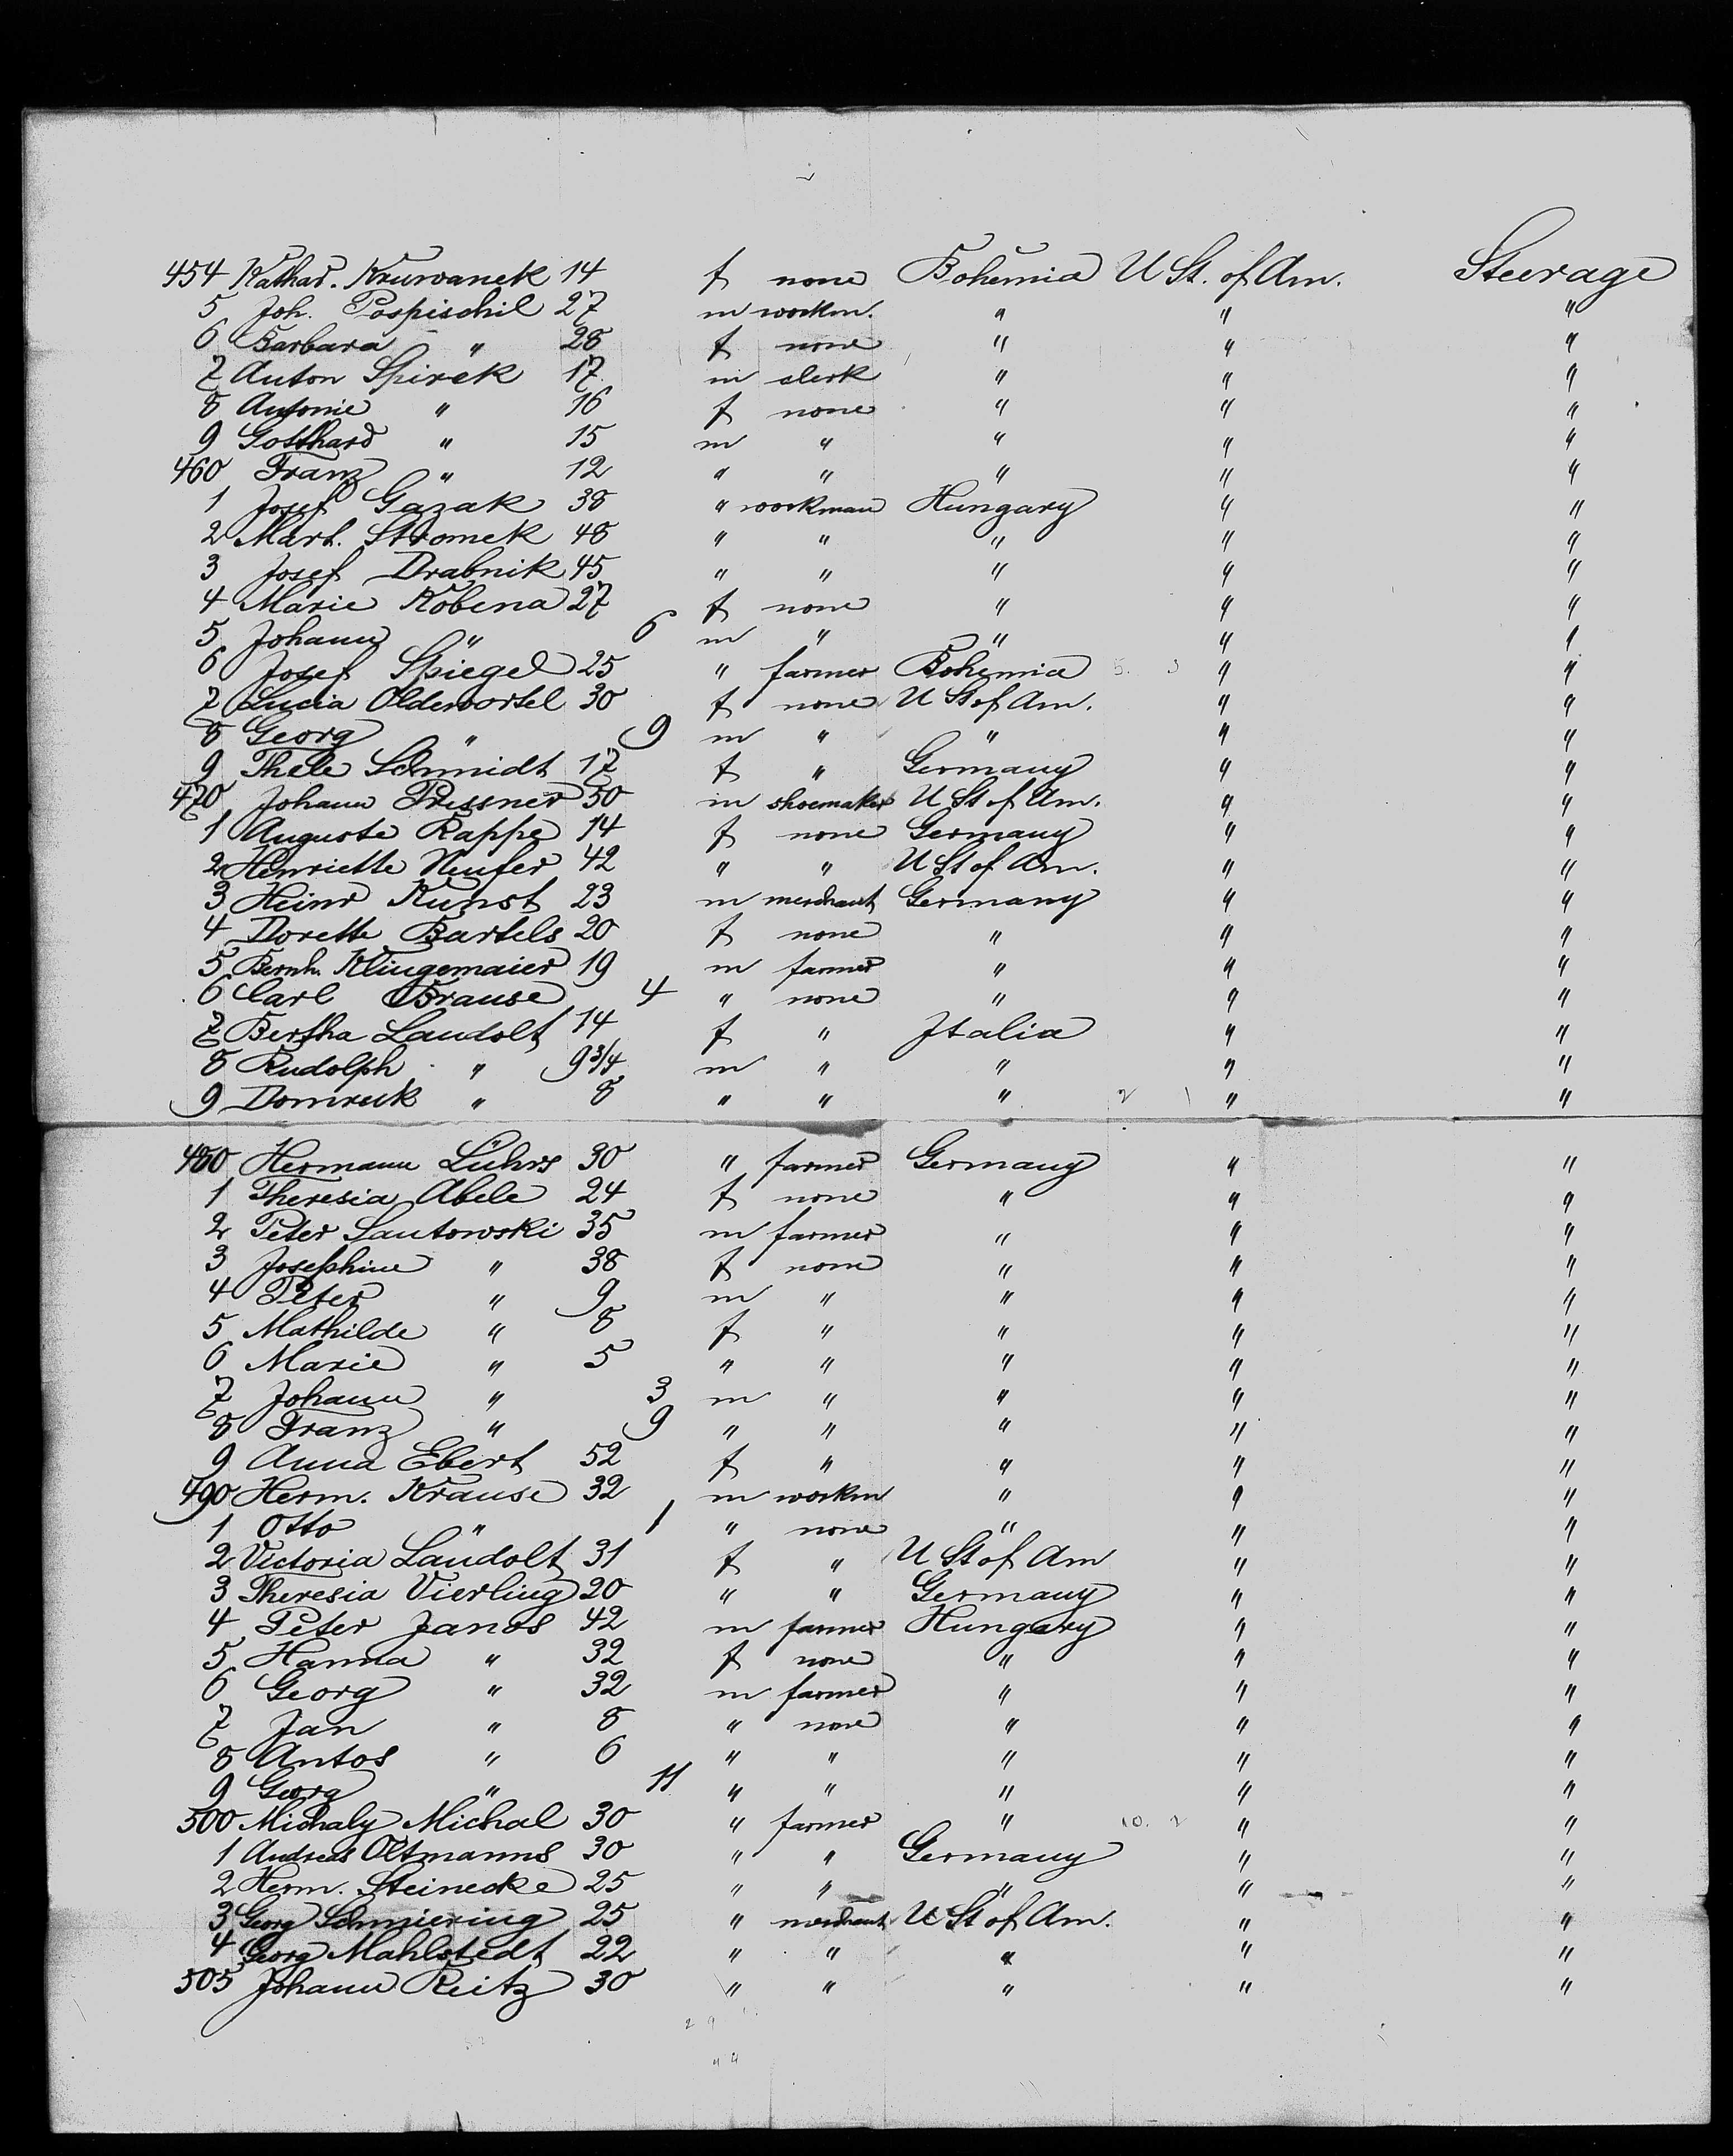 454 Kathar. Kruwanek 14 f none Bohemia U St. of Am. Steerage
5 Joh. Pospischil 27 m workm. " " "
6 Barbara " 28 f none " " "
7 Anton Spirek 17 m clerk " " "
8 Antonie " 16 f none " " "
9 Gotthard " 15 m " " " "
460 Franz " 12 " " " " "
1 Josef Gazak 38 " workman Hungary " "
2 Mart. Stromek 48 " " " " "
3 Josef Drabnik 45 " " " " "
4 Marie Kobena 27 f none " " "
5 Johann " 6 m " " " "
6 Josef Spiegel 25 " farmer Bohemia " "
7 Lucia Oldewortel 30 f none U St of Am. " "
8 Georg " 9 m " " " "
9 Thele Schmidt 17 f " Germany " "
470 Johann Pressner 50 m shoemaker U St of Am. " "
1 Auguste Rappe 14 f none Germany " "
2 Henriette Neufer 42 " " U St of Am. " "
3 Heinr Kunst 23 m merchant Germany " "
4 Dorette Bartels 20 f none " " "
5 Bernh. Klingemaier 19 m farmer " " "
6 Carl Brause 4 " none " " "
7 Bertha Landolt 14 f " Italia " "
8 Rudolph " 9 3/4 m " " " "
9 Domreck " 8 " " " " "
480 Hermann Lührs 30 " farmer Germany " "
1 Theresia Abele 24 f none " " "
2 Peter Lautowski 35 m farmer " " "
3 Josephine " 38 f none " " "
4 Peter " 9 m " " " "
5 Mathilde " 8 f " " " "
6 Marie " 5 " " " " "
7 Johann " 3 m " " " "
8 Franz " 9 " " " " "
9 Anna Ebert 52 f " " " "
490 Herm. Krause 32 m workm " " "
1 Otto " 1 " none " " "
2 Victoria Landolt 31 f " U St of Am " "
3 Theresia Vierling 20 " " Germany " "
4 Peter Janos 42 m farmer Hungary " "
5 Hanna " 32 f none " " "
6 Georg " 32 m farmer " " "
7 Jan " 8 " none " " "
8 Antos " 6 " " " " "
9 Georg " 11 " " " " "
500 Michaly Michal 30 " farmer " " "
1 Andreas Oltmanns 30 " " Germany " "
2 Herm. Steinecke 25 " " " " "
3 Georg Schmiering 25 " merchant U St of Am. " "
4 Georg Mahlstedt 22 " " " " "
505 Johann Reitz 30 " " " " "